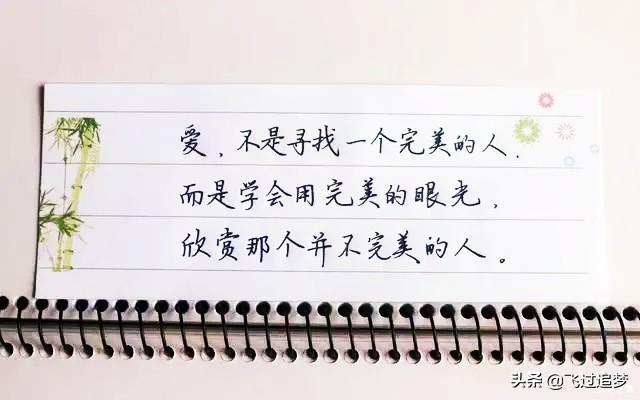 爱、不是寻找一个完美的人.
而是学会用完美的眼光，
欣赏那个并不完美的人。
头条 @飞过追梦